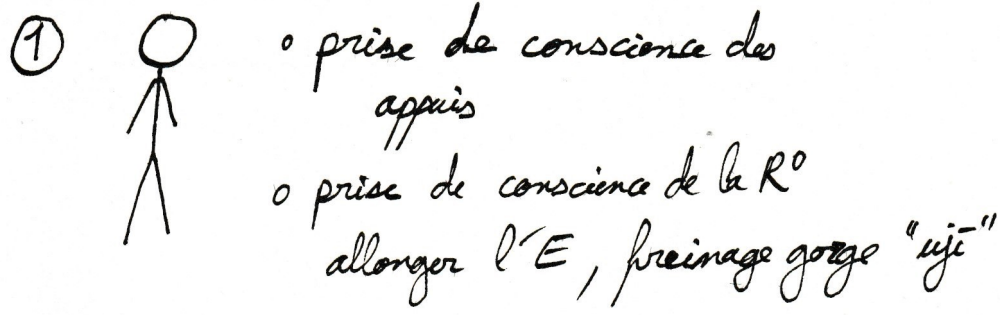 ① ∘ prise de conscience des
appuis
∘ prise de conscience de la R°
allonger l'E, freinage gorge "ujï"